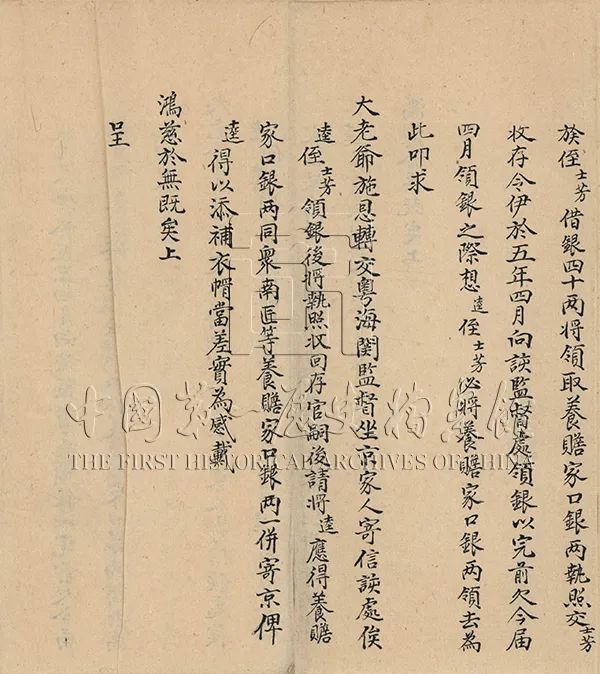 族侄士芳借銀四十两將領取養贍家口銀两執照交士芳
收存令伊於五年四月向該監督處領銀以完前欠今届
四月領銀之際想逵侄士芳必將養贍家口銀两領去為
此叩求
大老爺施恩轉交粤海関監督坐京家人寄信該處俟
逵侄士芳領銀後將執照収回存官嗣後請將逵應得養贍
家口銀两同衆南匠等養贍家口銀两一併寄京俾
逵得以添補衣帽當差實為感戴
鴻慈於無既矣上
呈
中國第一歷史檔案館
THE FIRST HISTORICAL ARCHIVES OF CHINA